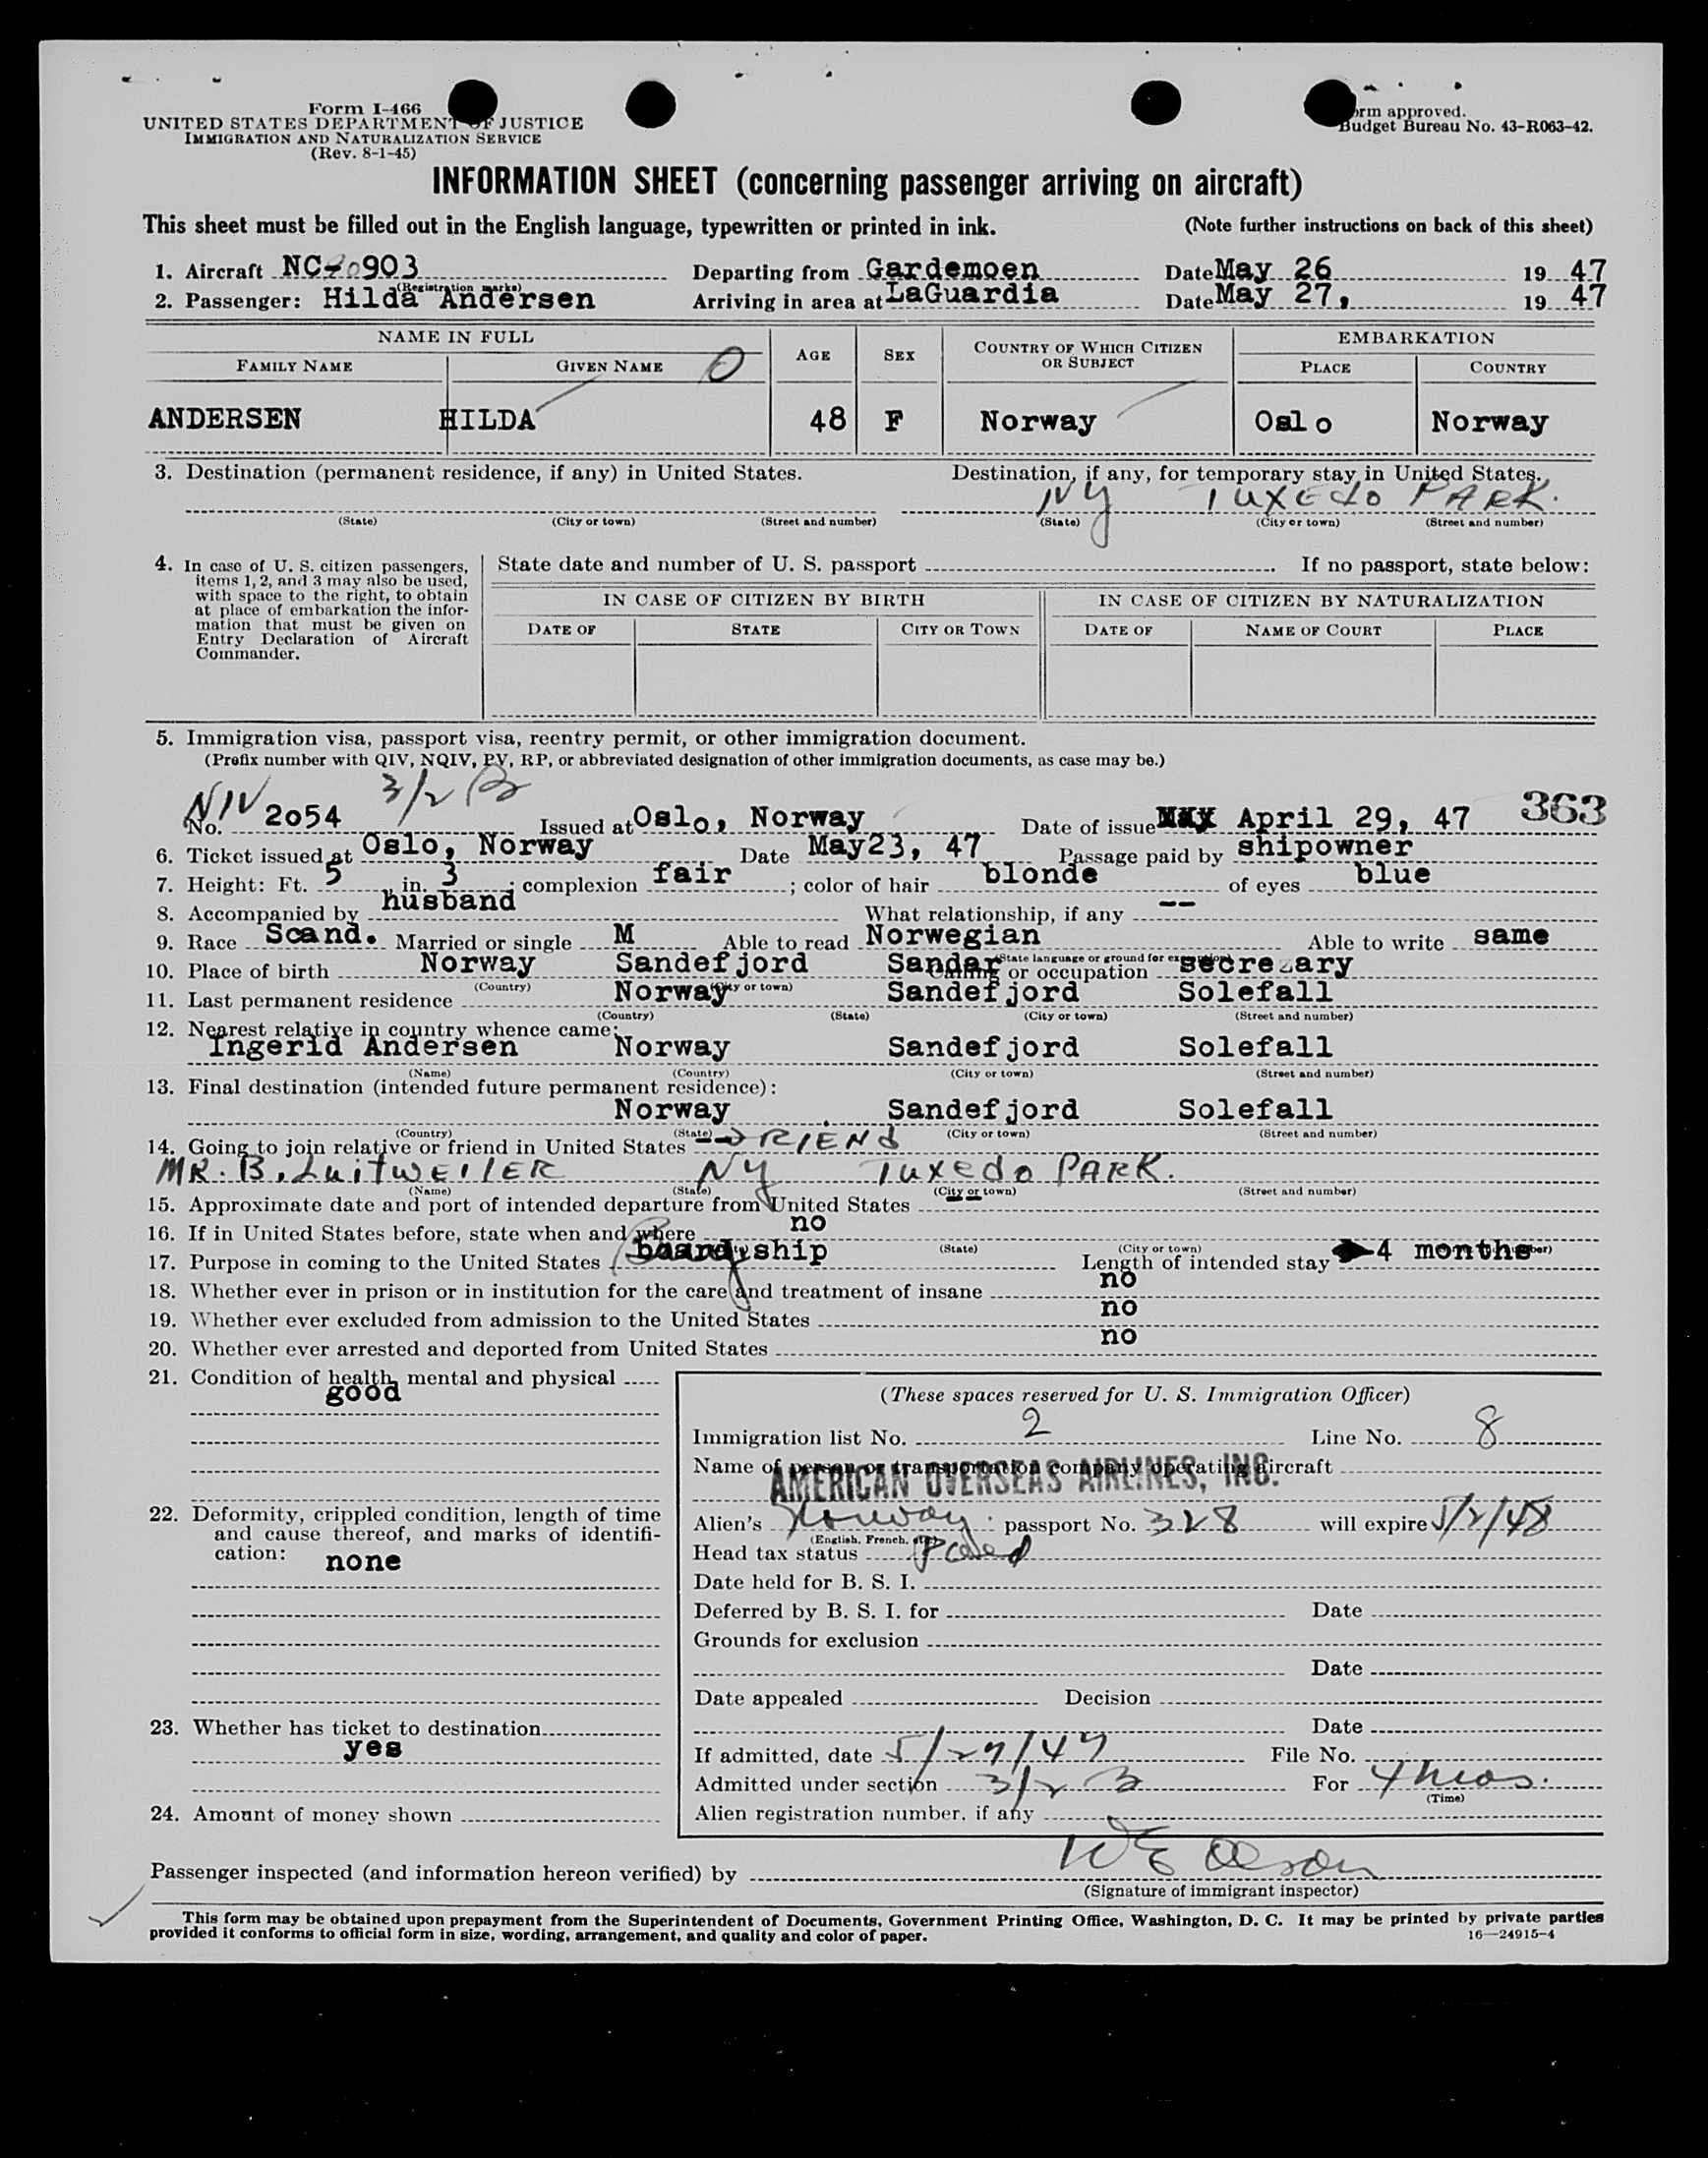 Form I-466
UNITED STATES DEPARTMENT OF JUSTICE
IMMIGRATION AND NATURALIZATION SERVICE
(Rev. 8-1-45)
rm approved.
Budget Bureau No. 43-R063-42.
INFORMATION SHEET (concerning passenger arriving on aircraft)
This sheet must be filled out in the English language, typewritten or printed in ink. (Note further instructions on back of this sheet)
1. Aircraft NC 903 Departing from Gardemoen Date May 26 1947
(Registration marks)
2. Passenger: Hilda Andersen Arriving in area at LaGuardia Date May 27, 1947
NAME IN FULL AGE SEX COUNTRY OF WHICH CITIZEN OR SUBJECT EMBARKATION
FAMILY NAME GIVEN NAME PLACE COUNTRY
ANDERSEN HILDA 48 F Norway Oslo Norway
3. Destination (permanent residence, if any) in United States. Destination, if any, for temporary stay in United States.
NY TUXEDO PARK.
(State) (City or town) (Street and number) (State) (City or town) (Street and number)
4. In case of U. S. citizen passengers, items 1, 2, and 3 may also be used, with space to the right, to obtain at place of embarkation the information that must be given on Entry Declaration of Aircraft Commander.
State date and number of U. S. passport . If no passport, state below:
IN CASE OF CITIZEN BY BIRTH IN CASE OF CITIZEN BY NATURALIZATION
DATE OF STATE CITY OR TOWN DATE OF NAME OF COURT PLACE
5. Immigration visa, passport visa, reentry permit, or other immigration document.
(Prefix number with QIV, NQIV, PV, RP, or abbreviated designation of other immigration documents, as case may be.)
NIV 3/2 B
No. 2054 Issued at Oslo, Norway Date of issue April 29, 47 363
6. Ticket issued at Oslo, Norway Date May23, 47 Passage paid by shipowner
7. Height: Ft. 5 in. 3; complexion fair; color of hair blonde of eyes blue
8. Accompanied by husband What relationship, if any --
9. Race Scand. Married or single M Able to read Norwegian Able to write same
(State language or ground for exemption)
10. Place of birth Norway Sandefjord Sandar Calling or occupation secretary
(Country) (City or town)
11. Last permanent residence Norway Sandefjord Solefall
(Country) (State) (City or town) (Street and number)
12. Nearest relative in country whence came:
Ingerid Andersen Norway Sandefjord Solefall
(Name) (Country) (City or town) (Street and number)
13. Final destination (intended future permanent residence):
Norway Sandefjord Solefall
(Country) (State) (City or town) (Street and number)
14. Going to join relative or friend in United States FRIEND
MR. B. LuitWEILER NY Tuxedo PARK.
(Name) (State) (City or town) (Street and number)
15. Approximate date and port of intended departure from United States
16. If in United States before, state when and where no
(State) (City or town)
17. Purpose in coming to the United States board ship Length of intended stay 4 months
18. Whether ever in prison or in institution for the care and treatment of insane no
19. Whether ever excluded from admission to the United States no
20. Whether ever arrested and deported from United States no
21. Condition of health, mental and physical
good
22. Deformity, crippled condition, length of time and cause thereof, and marks of identification: none
23. Whether has ticket to destination
yes
24. Amount of money shown
(These spaces reserved for U. S. Immigration Officer)
Immigration list No. 2 Line No. 8
Name of person or transportation company operating aircraft
AMERICAN OVERSEAS AIRLINES, INC.
Alien's Norway passport No. 328 will expire 5/2/48
(English, French, etc.)
Head tax status Paed
Date held for B. S. I.
Deferred by B. S. I. for Date
Grounds for exclusion
Date
Date appealed Decision
Date
If admitted, date 5/27/47 File No.
Admitted under section 3/2 B For 4 mos.
(Time)
Alien registration number, if any
Passenger inspected (and information hereon verified) by W E Olson
(Signature of immigrant inspector)
This form may be obtained upon prepayment from the Superintendent of Documents, Government Printing Office, Washington, D. C. It may be printed by private parties
provided it conforms to official form in size, wording, arrangement, and quality and color of paper. 16—24915-4